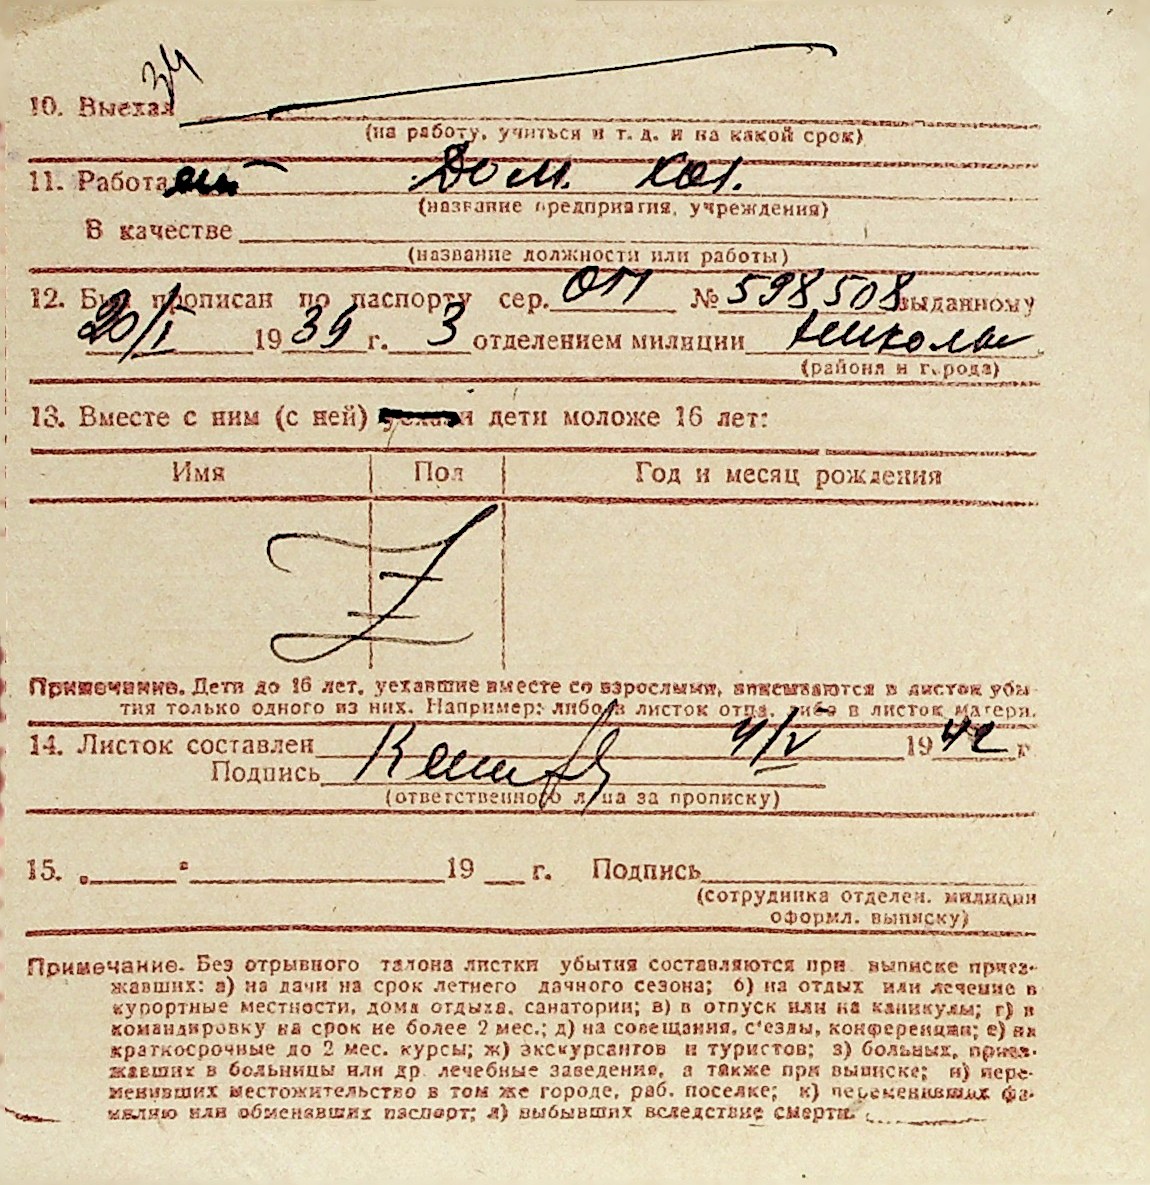 34
10. Выехал
(на работу, учиться и т. д. и на какой срок)
11. Работа Дом. хоз.
(название предприятия, учреждения)
В качестве
(название должности или работы)
12. Был прописан по паспорту сер. ОП № 598508 выданному
20/I 1939 г. 3 отделением милиции
(района и города)
13. Вместе с ним (с ней) дети моложе 16 лет:
Имя Пол Год и месяц рождения
Z
Примечание. Дети до 16 лет, уехавшие вместе со взрослыми, вписываются в листок убы-
тия только одного из них. Например: либо в листок отца, либо в листок матери.
14. Листок составлен 4/V 1942 г.
Подпись
(ответственного лица за прописку)
15. „ " 19 г. Подпись
(сотрудника отделен. милиции
оформл. выписку)
Примечание. Без отрывного талона листки убытия составляются при выписке приез-
жавших: а) на дачи на срок летнего дачного сезона; б) на отдых или лечение в
курортные местности, дома отдыха, санатории; в) в отпуск или на каникулы; г) в
командировку на срок не более 2 мес.; д) на совещания, с'езды, конференции; е) на
краткосрочные до 2 мес. курсы; ж) экскурсантов и туристов; з) больных, приез-
жавших в больницы или др. лечебные заведения, а также при выписке; и) пере-
менивших местожительство в том же городе, раб. поселке; к) переменивших фа-
милию или обменявших паспорт; л) выбывших вследствие смерти.